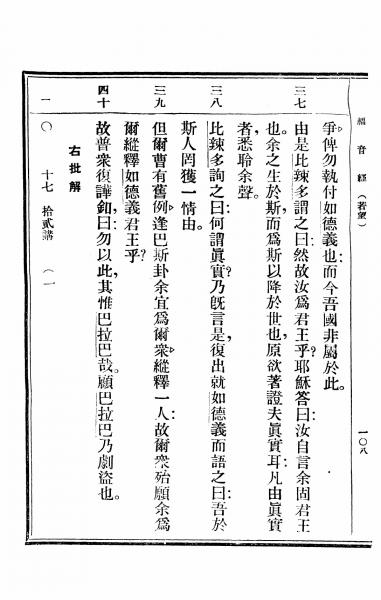 福音經（若望）
一〇八
爭俾勿執付如德義也而今吾國非屬於此。
三七
由是比辣多謂之曰：然故汝爲君王乎？耶穌答曰：汝自言余固君王
也。余之生於斯，而爲斯以降於世也，原欲著證夫眞實耳。凡由眞實
者，悉聆余聲。
三八
比辣多詢之曰：何謂眞實？乃旣言是，復出就如德義而語之曰：吾於
斯人罔獲一情由。
三九
但爾曹有舊例，逢巴斯卦余宜爲爾衆縱釋一人：故爾衆殆願余爲
爾縱釋如德義君王乎？
四十
故普衆復譁𨥥曰：勿以此，其惟巴拉巴哉。顧巴拉巴乃劇盜也。
右批解
一〇　十七　拾貳講　（一